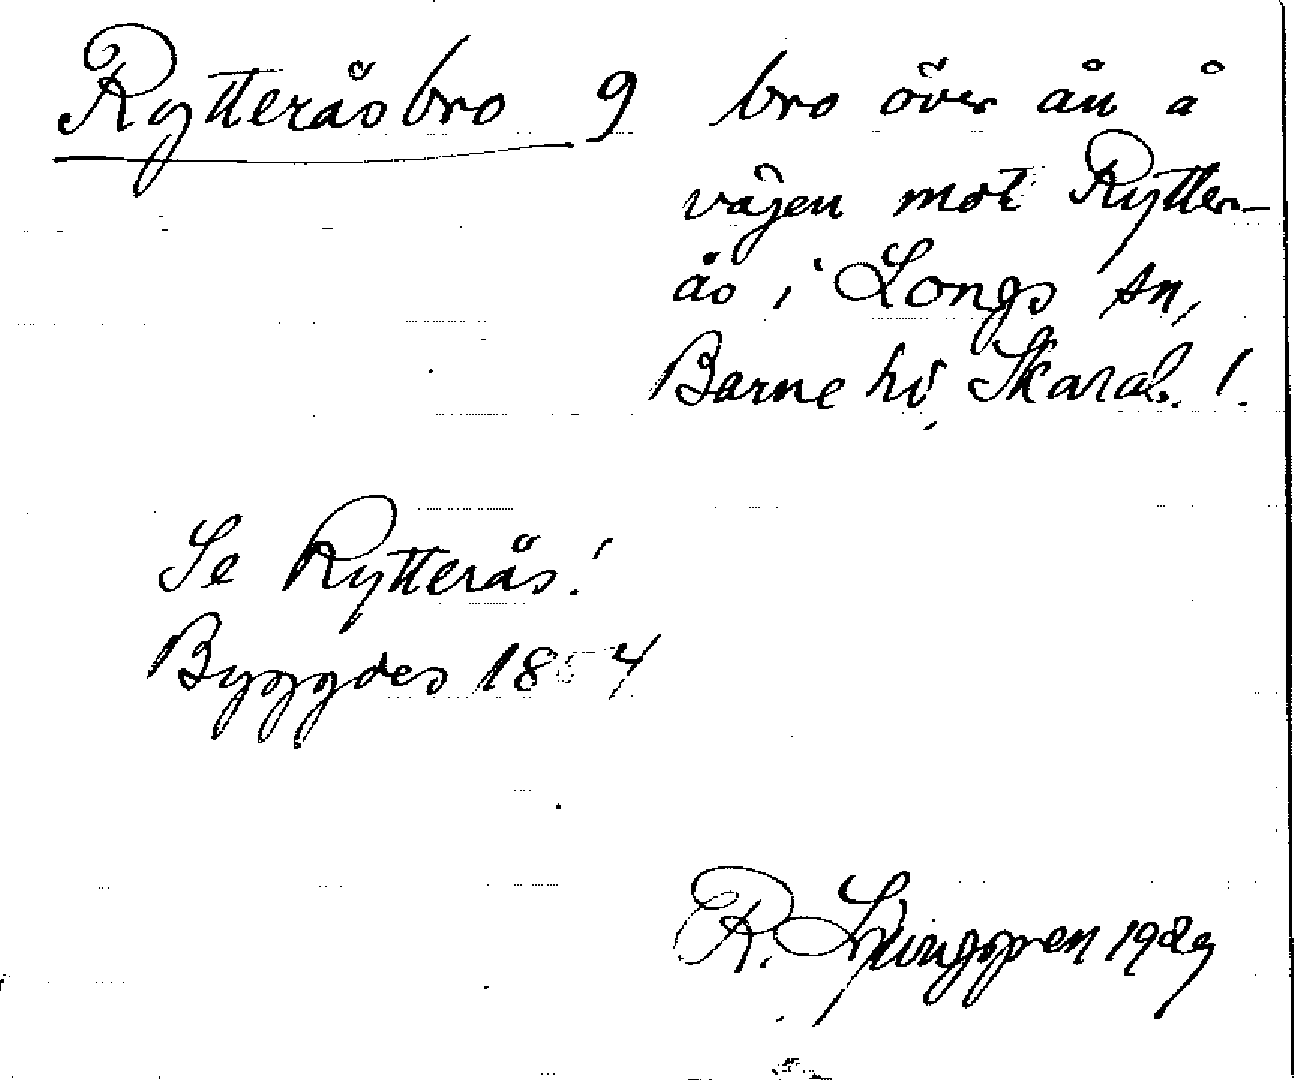 Rytteråsbro 9 bro över ån å
vägen mot Rytter-
ås i Longs sn,
Barne hd, Skarab. l.
Se Rytterås!
Byggdes 1854
R. Ljunggren 1929